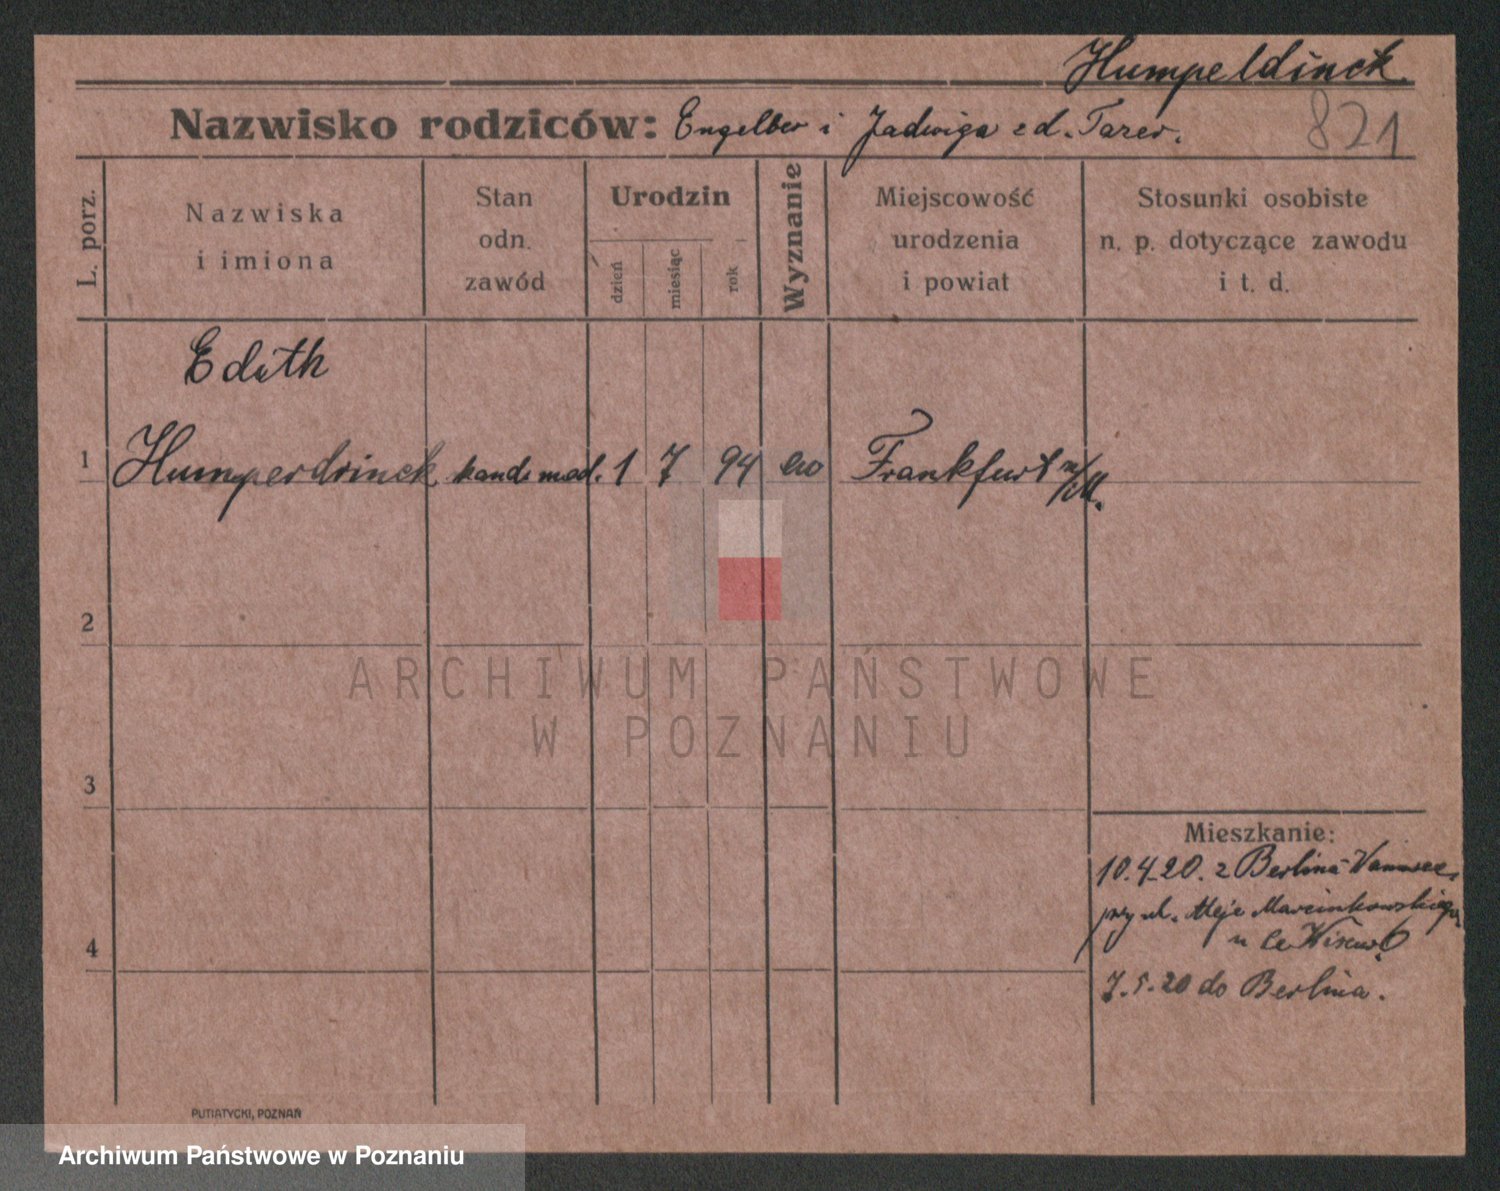 Humpeldinck.
Nazwisko rodziców: Engelber i Jadwiga z d. Taxer.
821
L. porz.
Nazwiska
i imiona
Stan
odn.
zawód
Urodzin
dzień
miesiąc
rok
Wyznanie
Miejscowość
urodzenia
i powiat
Stosunki osobiste
n. p. dotyczące zawodu
i t. d.
Edith
1 Humperdrinck kand. med. 1 7 94 ew Frankfurt n/M.
2
3
4
ARCHIWUM PAŃSTWOWE
W POZNANIU
Mieszkanie:
10.4.20. z Berlina-Wannsee,
przy ul. Aleje Marcinkowskiego
u
7.5.20 do Berlina.
PUTIATYCKI, POZNAŃ
Archiwum Państwowe w Poznaniu